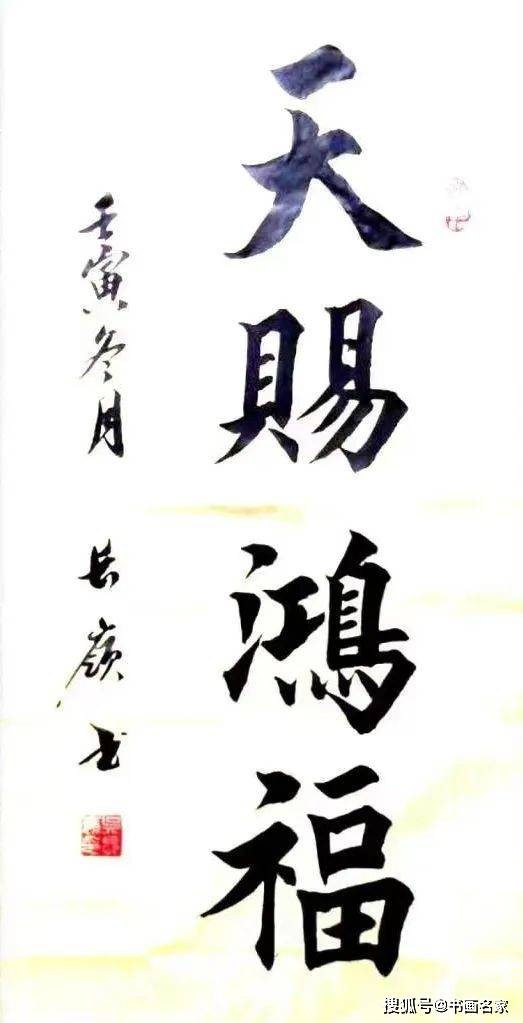 天賜鴻福
壬寅冬月 嶺书
搜狐号@书画名家